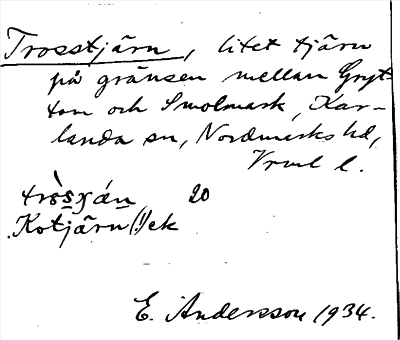 Trosstjärn, litet tjärn
på gränsen mellan Gryt-
tom och Smolmark, Kar-
landa sn, Nordmarks hd,
Vrml l.
20
Kotjärn(!)ek
E. Andersson 1934.